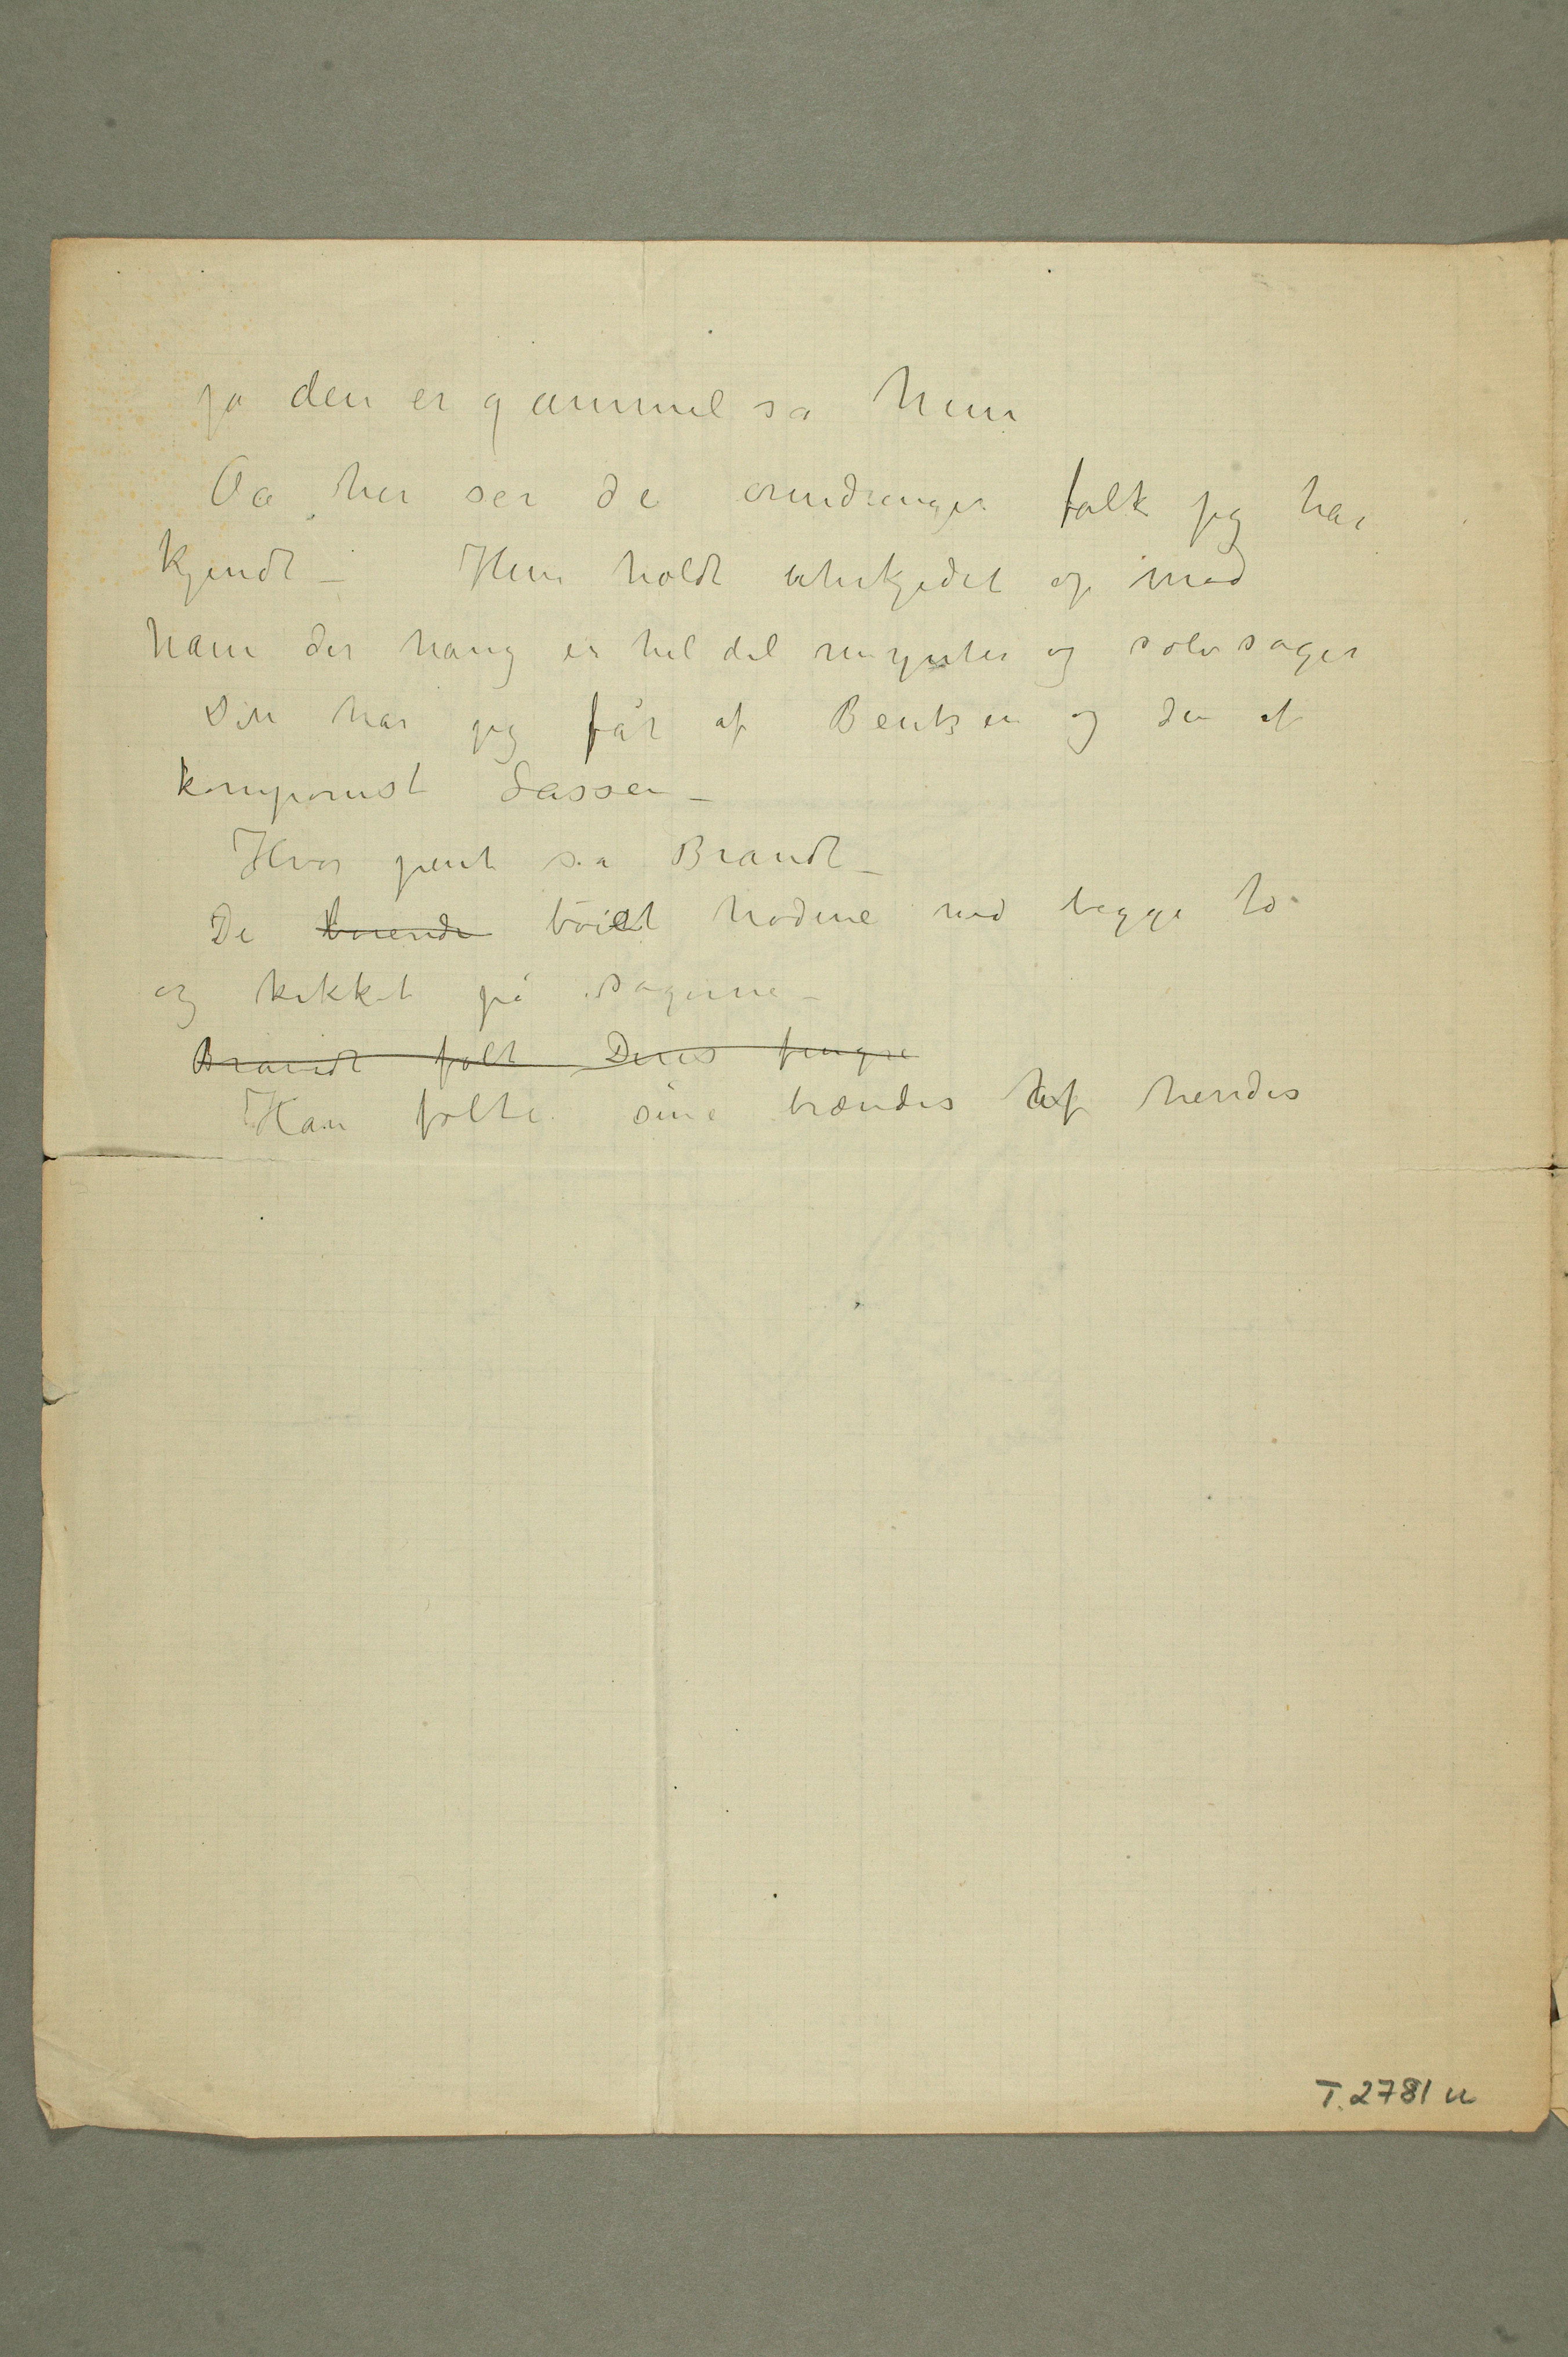 ja den er gammel sa hun
Og her ser de folk jeg har
kjendt – Hun holdt uhrkjedet op mod
ham der hang en hel del mynter og sølvsager
Den har jeg fåt af Bentzen og den af
komponist Lassen –
Hvor pent sa Brandt –
De boiende bøiet hodene ned begge to
og kikket på sagerne –
Brandt følt Deres fingre
Han følte sine brændes af hendes
T. 2781 u